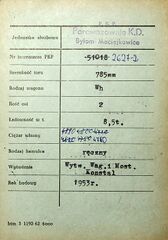 P.K.P.
Jednostka służbowa Parowozownia K.D.
Bytom Maciejkowice
Nr inwentarzowy PKP 51018 2627-2
Szerokość toru 785mm
Rodzaj wagonu Wh
Ilość osi 2
Ładowność w t. 8,5t.
Ciężar własny
Rodzaj hamulca ręczny
Wyposażenie Wytw. Wag. i Most.
Konstal
Rok budowy 1953r.